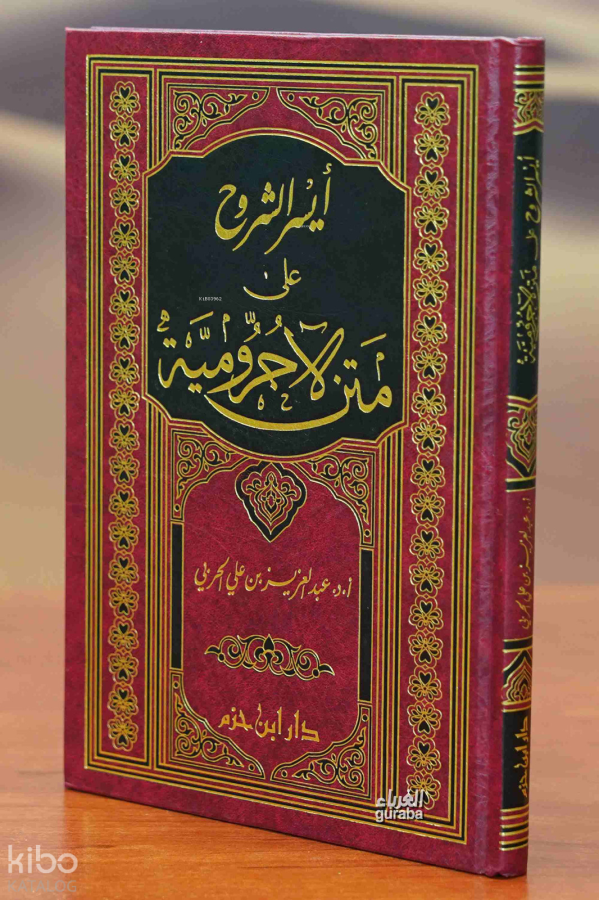 أيسر الشروح
على
KIB03962
متن الآجرُّوميَّة
أ.د. عبد العزيز بن علي الحربي
دار ابن حزم
أيسر الشروح على متن الآجرومية
أ.د. عبد العزيز بن علي الحربي
دار ابن حزم
الغرباء
guraba
kibo
KATALOG